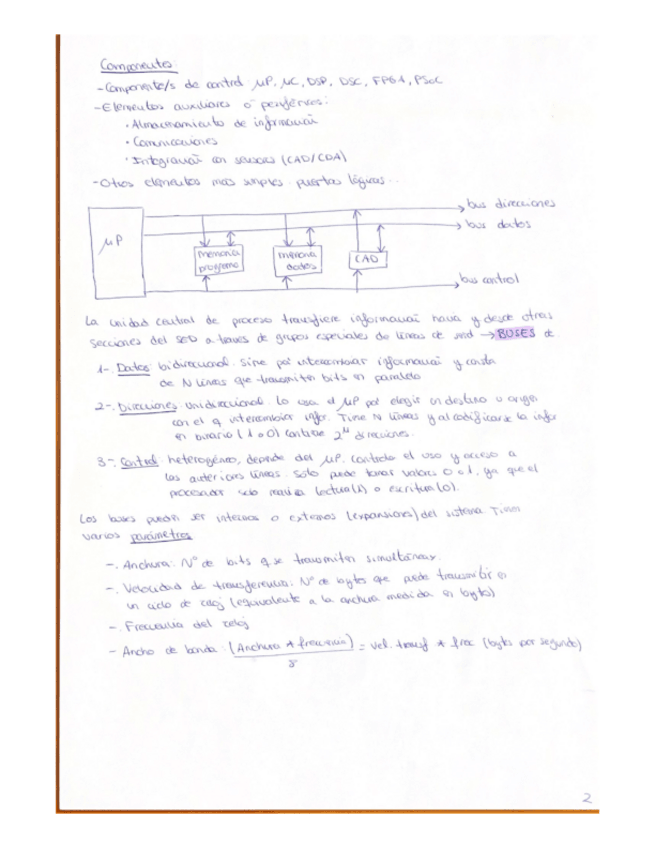 Componentes:
- Componente/s de control: μP, μC, DSP, DSC, FPGA, PSoC
- Elementos auxiliares o periféricos:
· Almacenamiento de información
· Comunicaciones
· Integración con sensores (CAD/CDA)
- Otros elementos más simples: puertas lógicas...
bus direcciones
bus datos
μP
memoria programa
memoria datos
CAD
bus control
La unidad central de proceso transfiere información hacia y desde otras
secciones del SED a través de grupos especiales de líneas de → BUSES de
1-. Datos bidireccional. Sirve para intercambiar información y consta
de N líneas que transmiten bits en paralelo
2-. Direcciones unidireccional. Lo usa el μP para elegir un destino u origen
con el q intercambiar infor. Tiene N líneas y al codificarse la infor
en binario (1 o 0) contiene 2^N direcciones.
3-. Control: heterogéneo, depende del μP. Controla el uso y acceso a
las anteriores líneas. Solo puede tomar valores 0 o 1, ya que el
procesador solo realiza lectura(1) o escritura(0).
Los buses pueden ser internos o externos (expansiones) del sistema Tienen
varios parámetros
-. Anchura: Nº de bits q se transmiten simultáneax.
-. Velocidad de transferencia: Nº de bytes que puede transmitir en
un ciclo de reloj (equivalente a la anchura medida en bytes)
-. Frecuencia del reloj
- Ancho de banda: (Anchura * frecuencia) / 8 = vel. transf * frec (bytes por segundo)
2